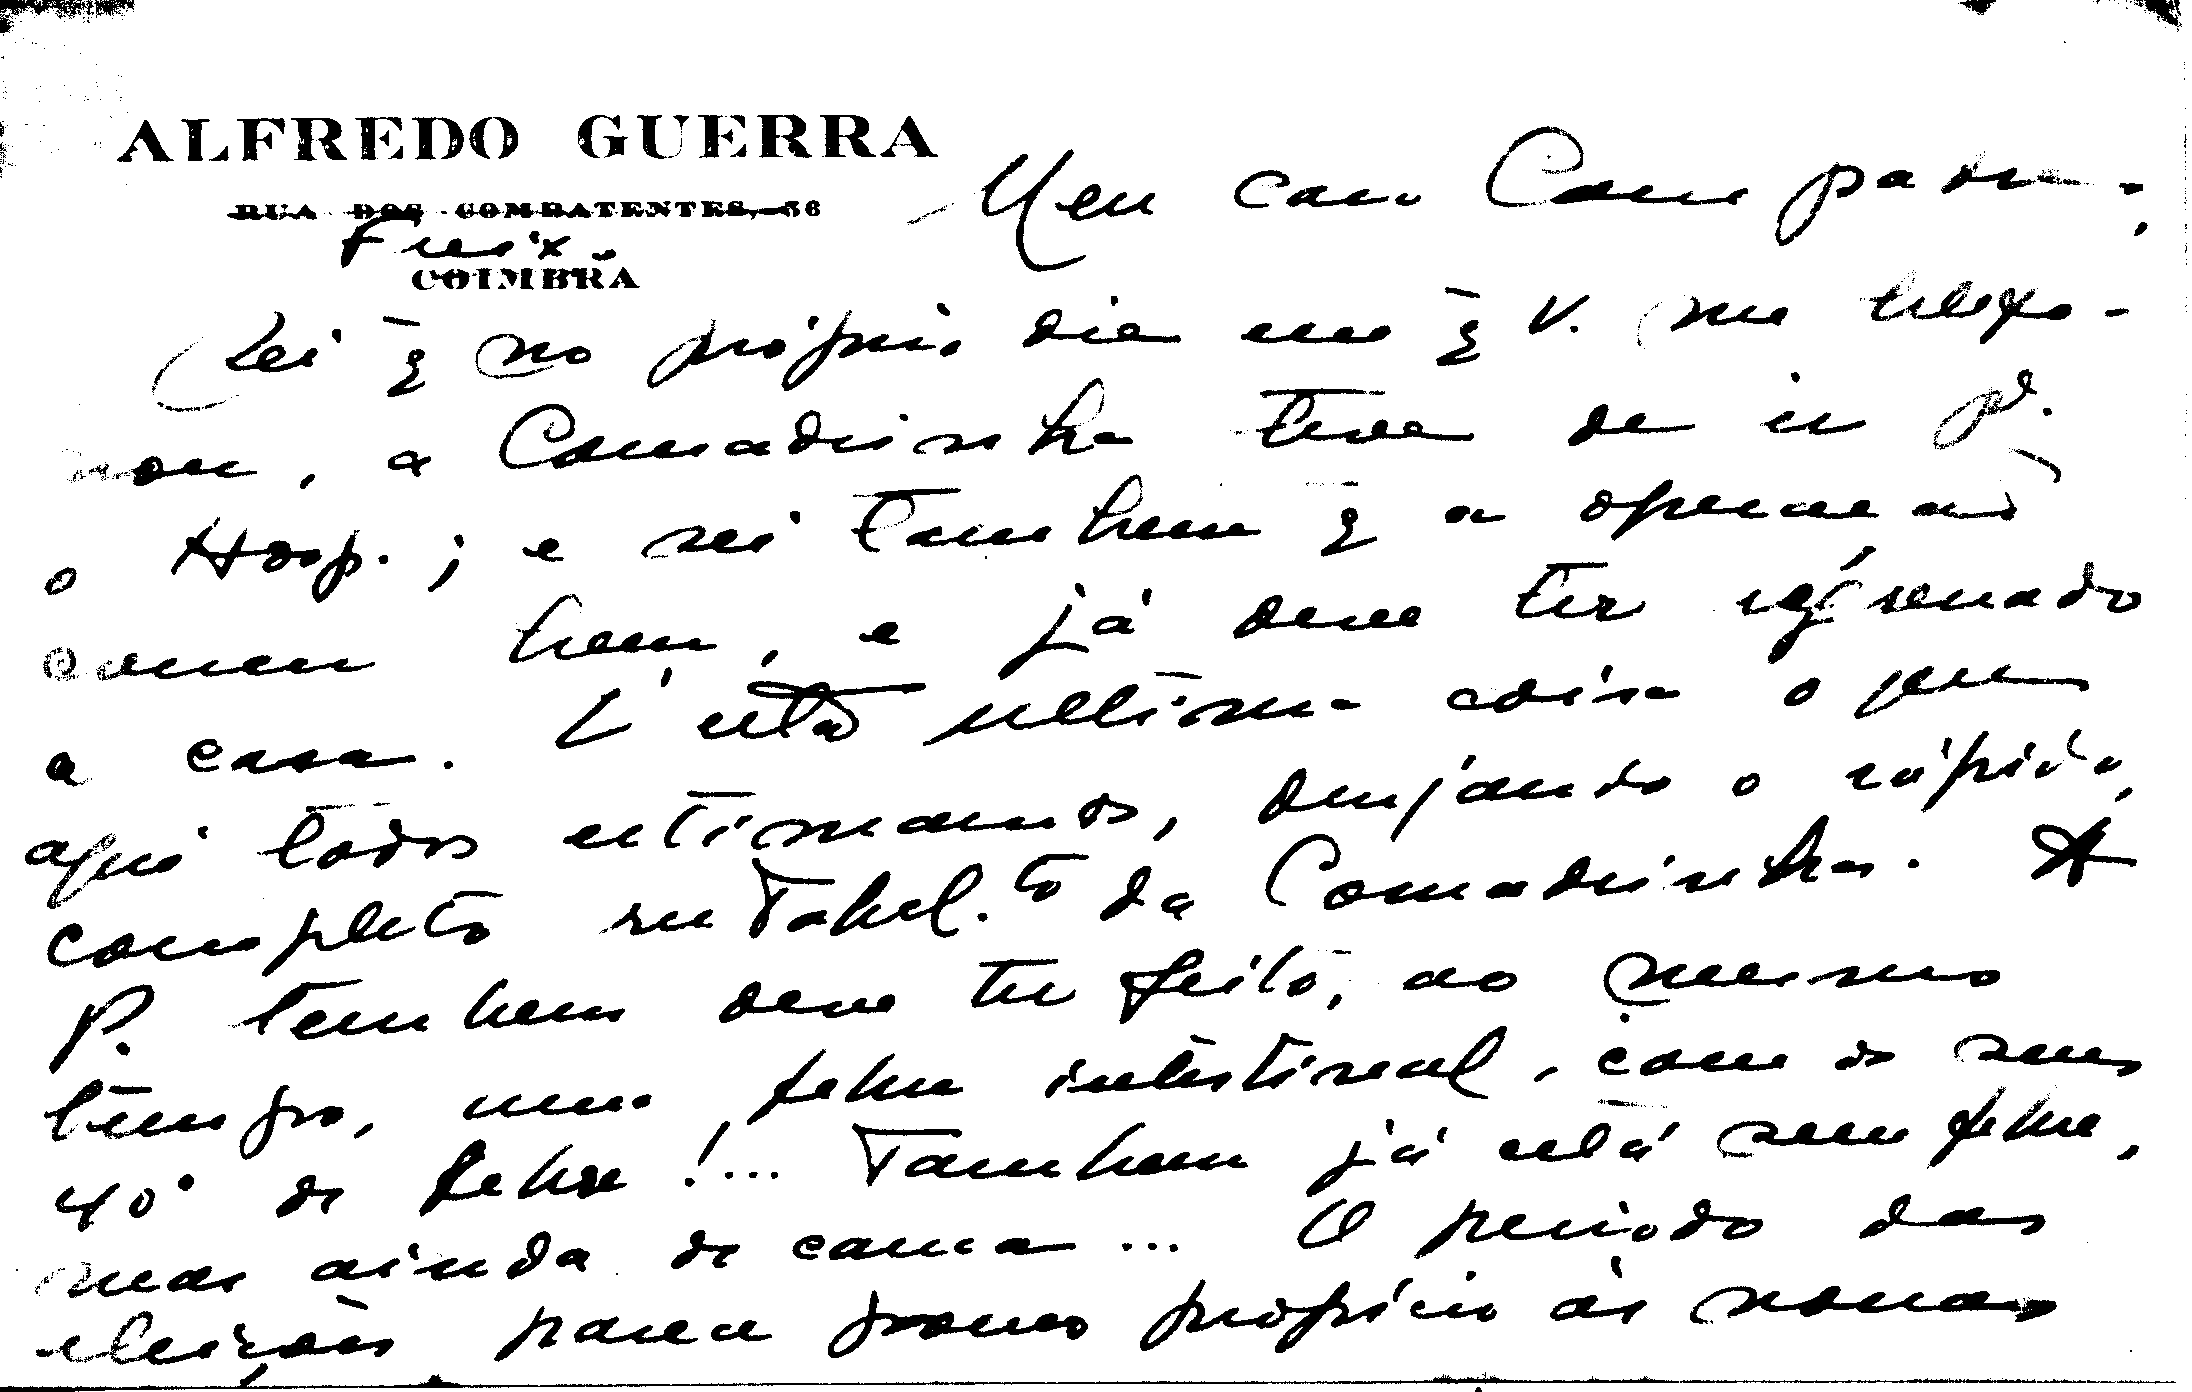 ALFREDO GUERRA
RUA DOS COMBATENTES, 56
COIMBRA
Meu caro Compadre,
Sei q̃ no próprio dia em q̃ V. me telefo-
nou, a Comadrinha teve de ir pª.
o Hosp.; e sei tambem q̃ a operação
correu bem, e já deve ter regressado
a casa. É esta ultima coisa o que
aqui todos estimamos, desejando o rápido,
completo restabel.to da Comadrinha. A
P. tambem deve ter feito, ao mesmo
tempo, uma febre intestinal, com os seus
40° de febre!... Tambem já está sem febre,
mas ainda de cama... O periodo das
eleições parece pouco propício às nossas